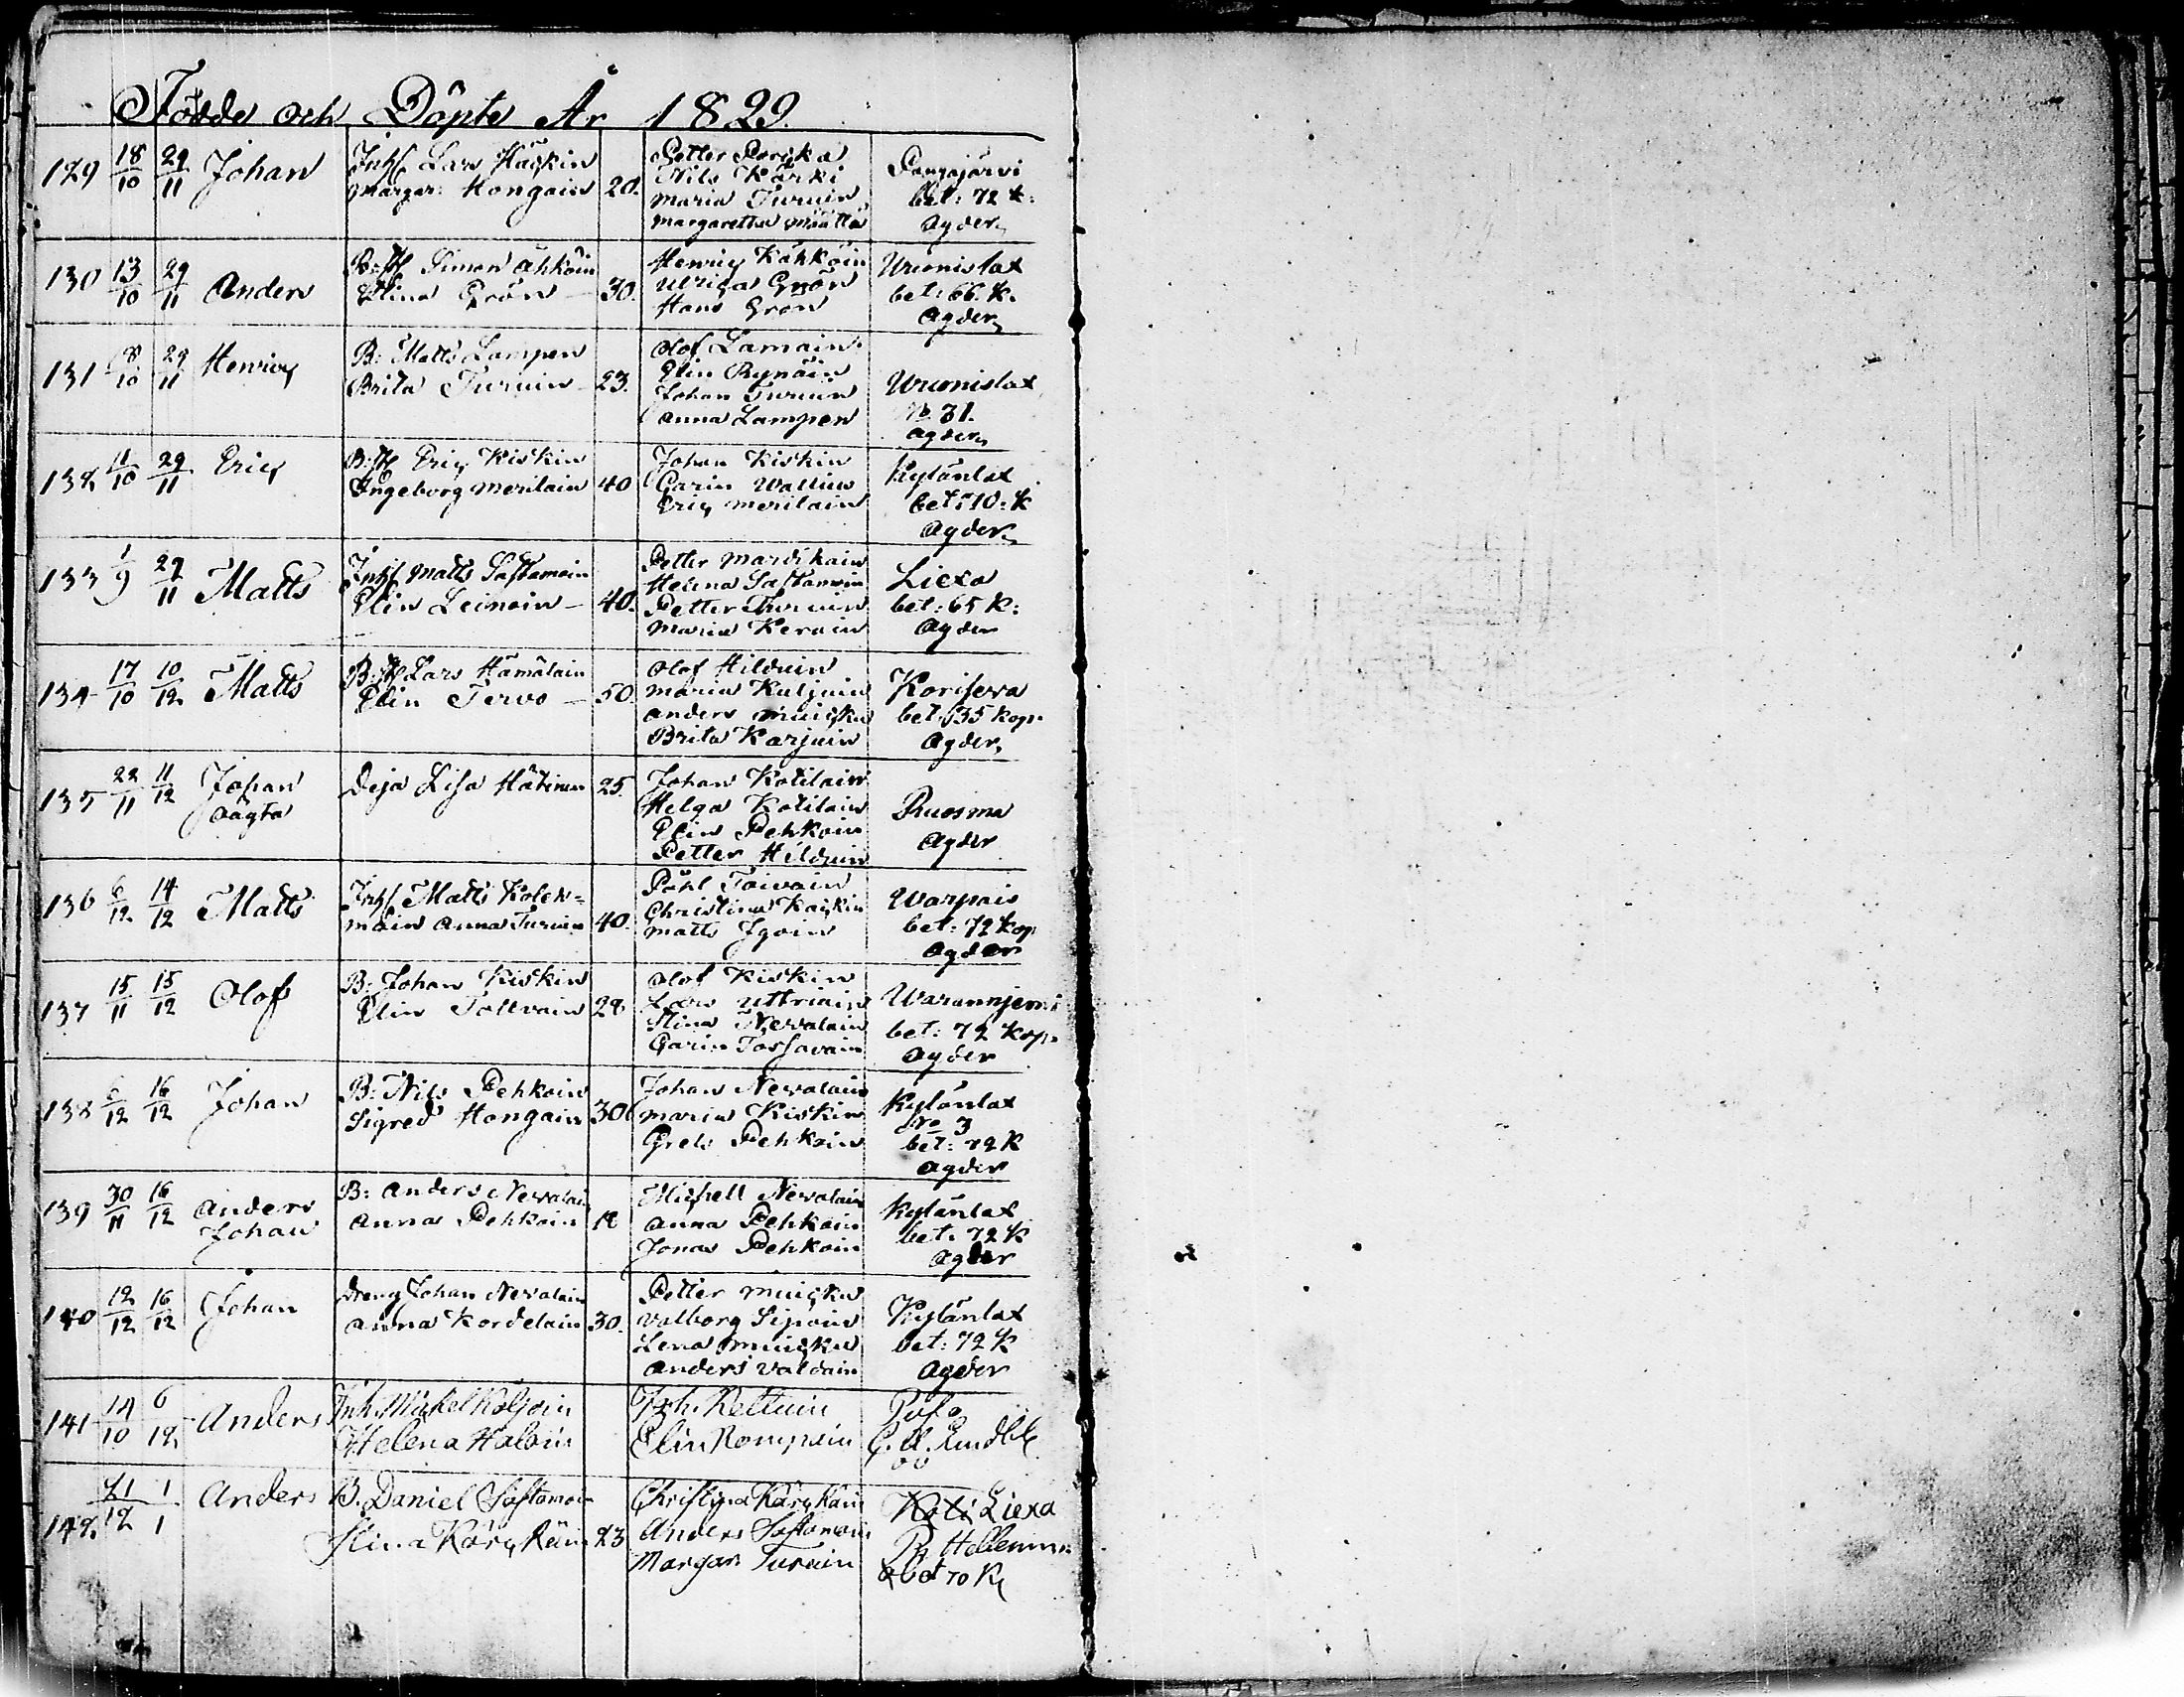 Födde och Döpte År 1829.
129 18/10 29/11 Johan Inhs Lars Häikin Margar: Hongain 20. Petter Nils Kärki Maria Turuin Margaretha Määttä Pangajärvi bet: 72 k: Agder
130 13/10 29/11 Anders B:S Simon Ähköin Elina Grön 30. Henric Kähköin Ulrica Grön Hans Grön Wuonislax bet: 66. k. Agder
131 8/10 29/11 Henric B: Matts Lampen Brita Turuin 23. Olof Lamain Elin Rynäin Johan Turuin Anna Lampen Wuonislax No 31. Agder
132 11/10 29/11 Eric B:S Eric Kiskin Ingeborg Merilain 40 Johan Kiskin Carin Wallius Eric Merilain Kylänlax bet: 70: k Agder
133 1/9 29/11 Matts Inhs Matts Sastamoin Elin Leinoin 40. Petter Mardikain Helena Sastamoin Petter Turuin Maria Kerain Liexa bet: 65 k: Agder
134 17/10 10/12 Matts B:S Lars Hämälain Elin Tervo 50. Olof Hilduin Maria Kuljuin Anders Muicku Brita Karjuin Korisewa bet: 35 kop. Agder
135 22/11 11/12 Johan oägta Deja Lisa Hätinen 25. Johan Kotilain Helga Kotilain Elin Pehkoin Petter Hilduin Ruosma Agder
136 6/12 14/12 Matts Inhs Matts Kolehmain Anna Turuin 40. Påhl Toivain Christina Kaikin Matts Igoin Warpais bet: 72 kop. Agder
137 15/11 15/12 Olof B: Johan Kiskin Elin Tolvain 28 Olof Kiskin Lars Uttriain Stina Nevalain Carin Tossavain Warannjemi bet: 72 kop. Agder
138 6/12 16/12 Johan B: Nils Pehkoin Sigred Hongain 30 Johan Nevalain Maria Kiskin Greta Pehkoin Kylänlax No 3 bet: 72 k Agder
139 30/11 16/12 Anders Johan B: Anders Nevalain Anna Pehkoin 18 Michell Nevalain Anna Pehkoin Jonas Pehkoin Kylänlax bet: 72 k Agder
140 12/12 16/12 Johan Dreng Johan Nevalain Anna Kordelain 30. Petter Muicku Valborg Sipoin Lena Muicku Anders Valdain Kylänlax bet: 72 k Agder
141 14/10 6/12 Anders Inh. Mickel Koljoin Helena Haloin Joh. Rettuin Elin Rompain
142 21/12 1/1 Anders B. Daniel Sastamoin Stina Kärckäin 23 Christina Kärckäin Anders Sastamoin Margar. Turuin Koli Liexa bet 70 k